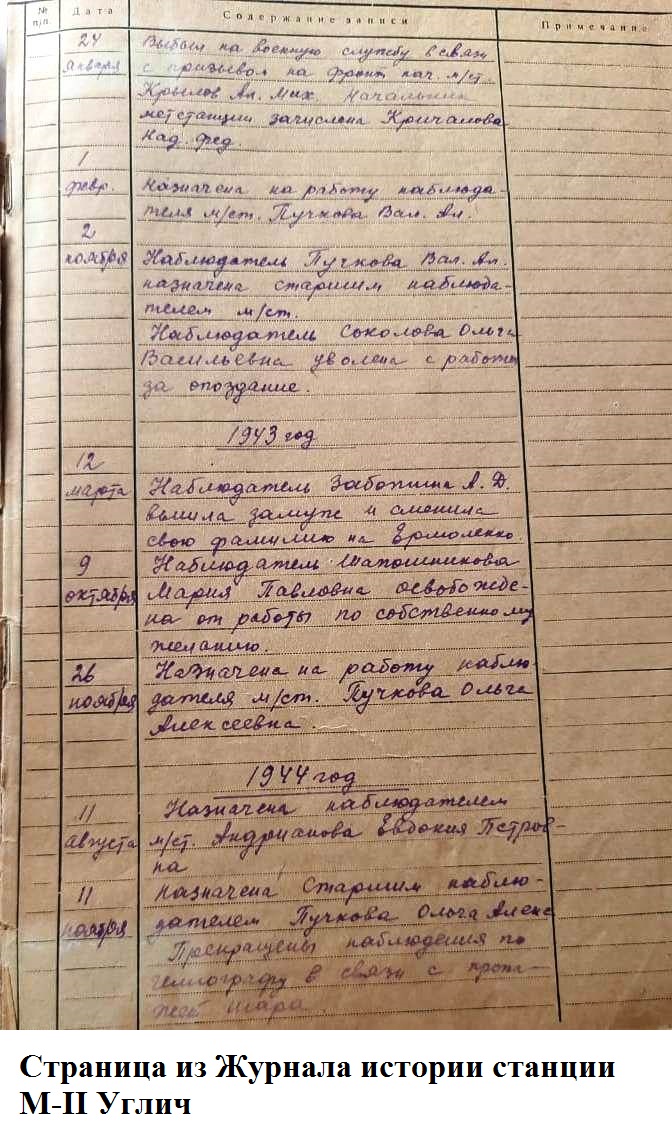 № п/п. Дата Содержание записи Примечание
24 Выбыл на военную службу в связи
января с призывом на фронт нач. м/ст.
Крылов Ал. Мих. Начальником
метстанции зачислена Кричалова
Над. Фед.
1
февр. Назначена на работу наблюда-
теля м/ст. Пучкова Вал. Ал.
2
ноября Наблюдатель Пучкова Вал. Ал.
назначена старшим наблюда-
телем м/ст.
Наблюдатель Соколова Ольга
Васильевна уволена с работы
за опоздание.
1943 год
12
марта Наблюдатель Заботина А. Д.
вышла замуж и сменила
свою фамилию на Ермоленко.
9 Наблюдатель Шапошникова
октября Мария Павловна освобожде-
на от работы по собственному
желанию.
26 Назначена на работу наблю-
ноября дателя м/ст. Пучкова Ольга
Алексеевна.
1944 год
11 Назначена наблюдателем
августа м/ст. Андрианова Евдокия Петров-
на
11 Назначена Старшим наблю-
ноября дателем Пучкова Ольга Алекс
Прекращены наблюдения по
гелиографу в связи с пропа-
жей шара.
Страница из Журнала истории станции
М-II Углич